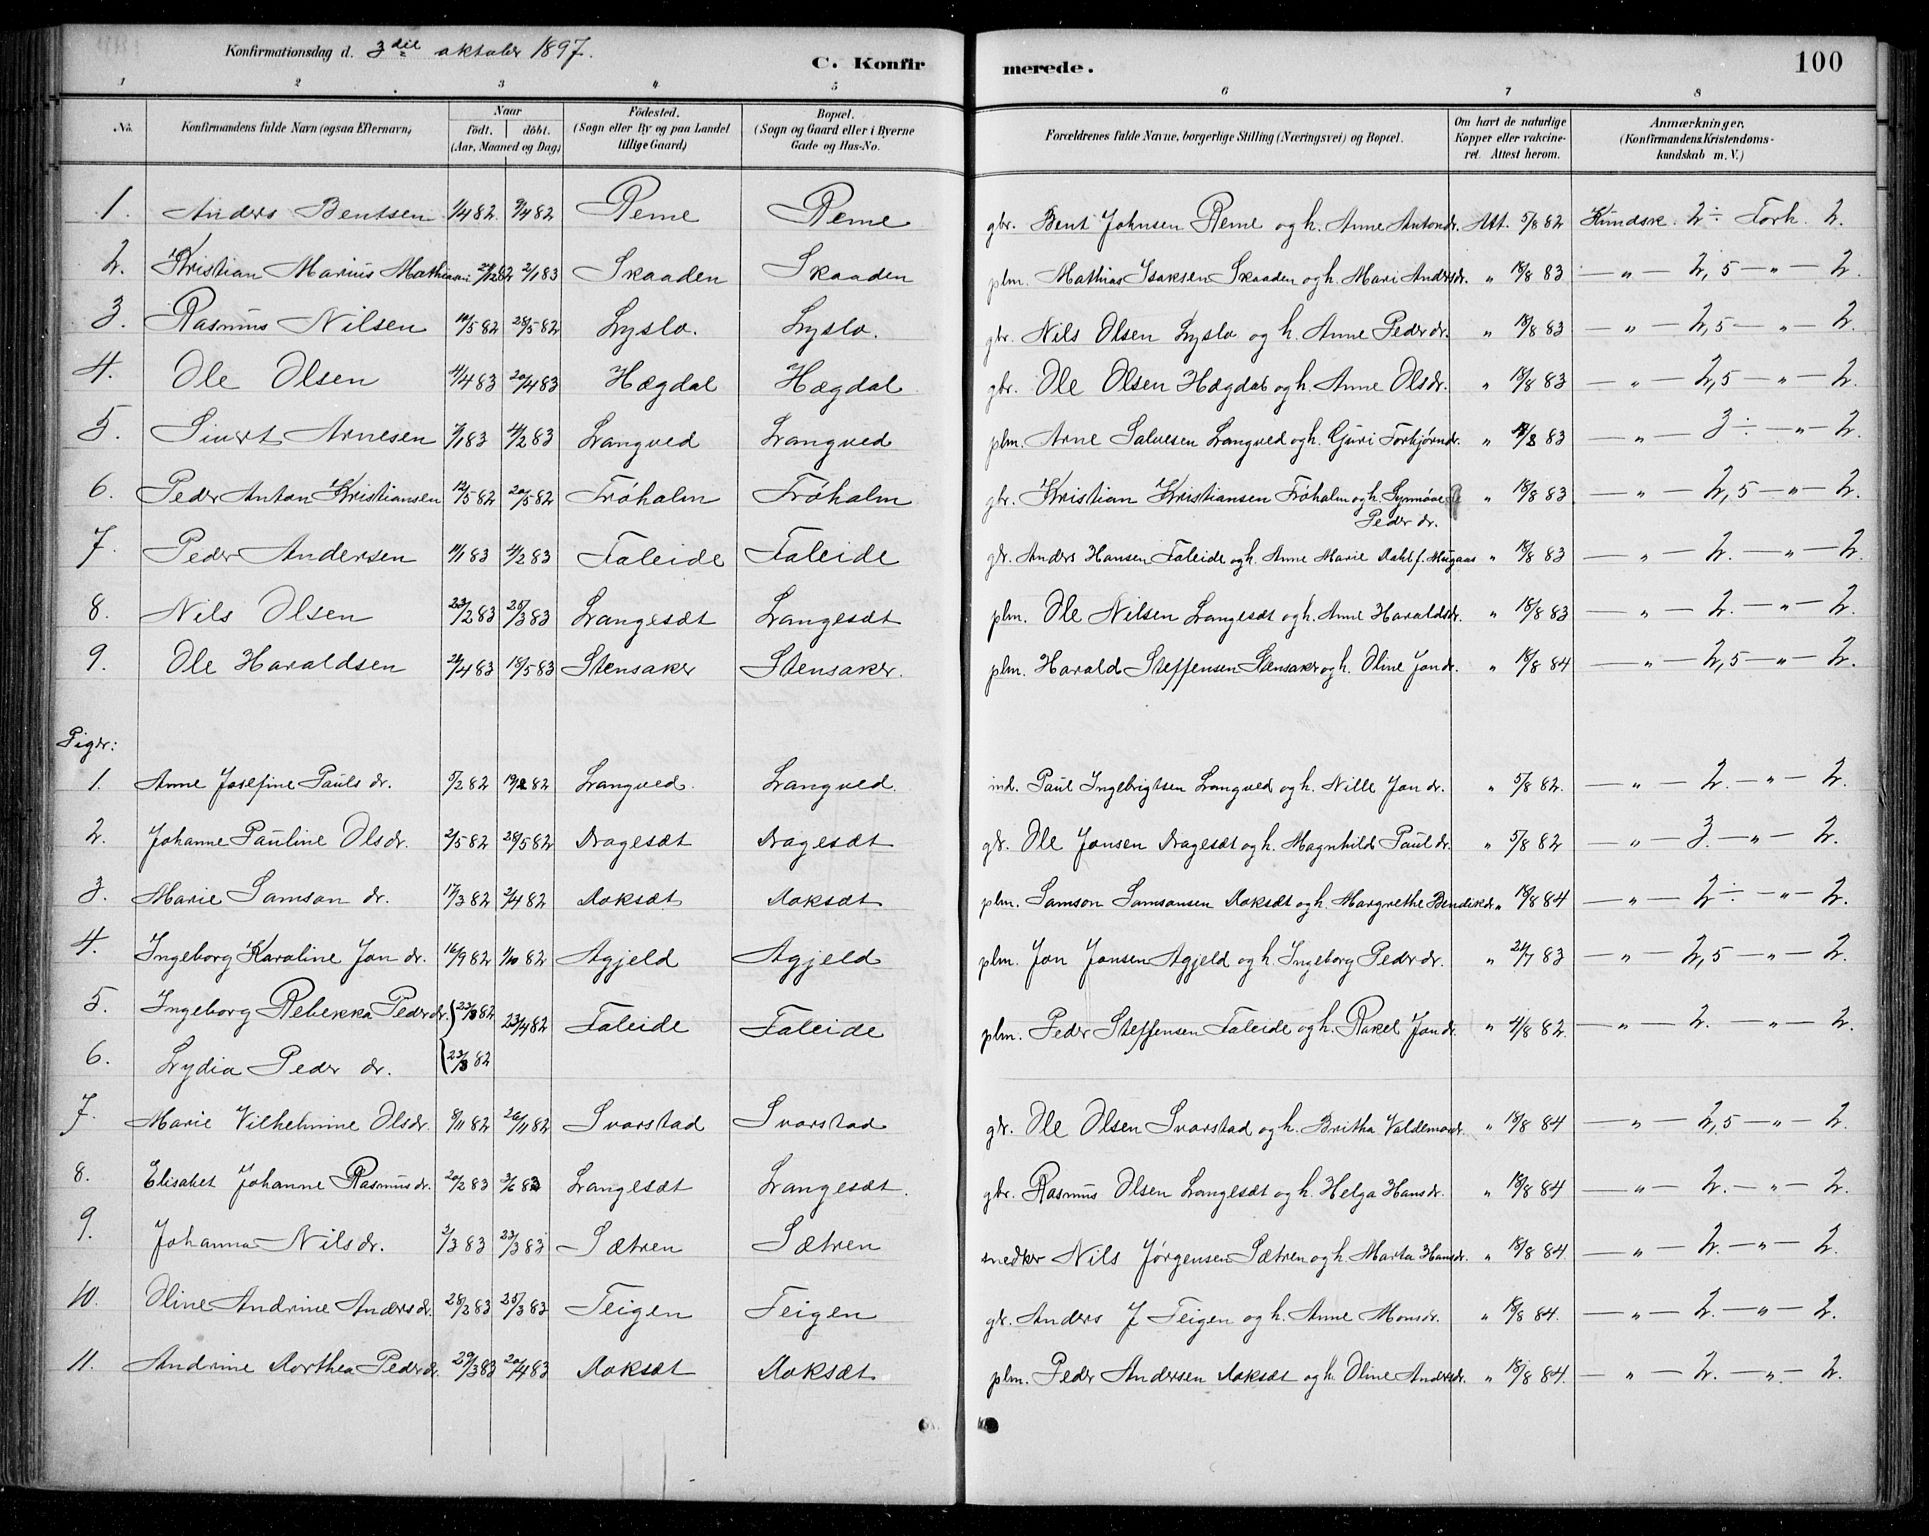 Konfirmationsdag d. 3die oktober 1897.
C. Konfirmerede.
100
1 2 3 4 5 6 7 8
No. | Konfirmandens fulde Navn (ogsaa Efternavn) | Naar født. | døbt. (Aar, Maaned og Dag) | Fødested. (Sogn eller By og paa Landet tillige Gaard) | Bopæl. (Sogn og Gaard eller i Byerne Gade og Hus-No. | Forældrenes fulde Navne, borgerlige Stilling (Næringsvei) og Bopæl. | Om havt de naturlige Kopper eller vakcineret. Attest herom. | Anmærkninger, (Konfirmandens Kristendomskundskab m. V.)
1. Anders Bentsen 1/4 82. 9/4 82 Reme Reme gbr. Bent Johnsen Reme og h. Anne Antondr. Att. 5/8 82 Kundsk. 2÷ Forh. 2.
2. Kristian Marius Mathiasen 27/12 82 2/1 83 Skaaden Skaaden plm. Mathias Isaksen Skaaden og h. Mari Andersdr. " 18/8 83 — " — 2,5 — " — 2.
3. Rasmus Nilsen 10/5 82 28/5 82 Lyslo. Lyslo. gbr. Nils Olsen Lyslo og h. Anne Pederdr. " 18/8 83 — " — 2,5 — " — 2.
4. Ole Olsen 11/4 83 20/4 83 Hægdal Hægdal gbr. Ole Olsen Hægdal og h. Anne Olsdr. " 18/8 83 — " — 2,5 — " — 2.
5. Sivert Arnesen 7/1 83 4/2 83 Langved Langved plm. Arne Salvesen Langved og h. Guri Torbjørndr. " 18/8 83 — " — 3÷ — " — 2.
6. Peder Anton Kristiansen 12/5 82 20/5 82 Frøholm Frøholm gbr. Kristian Kristiansen Frøholm og h. Synnøve " 18/8 83 — " — 2,5 — " — 2.
Peder dr.
7. Peder Andersen 11/1 83 4/2 83 Faleide Faleide gbr. Anders Hansen Faleide og h. Anne Marie Dahl f. Mugaas " 18/8 83 — " — 2. — " — 2.
8. Nils Olsen 23/2 83 25/3 83 Langesæt Langesæt plm. Ole Nilsen Langesæt og h. Anne Haraldsdr. " 18/8 83 — " — 2. — " — 2.
9. Ole Haraldsen 24/4 83 18/5 83 Stensaker Stensaker. plm. Harald Steffensen Stensaker og h. Oline Jondr. " 18/8 84 — " — 2,5 — " — 2.
Piger:
1. Anne Josefine Pauls dr. 5/2 82 19/2 82 Langved. Langved. ind. Paul Ingebrigtsen Langved og h. Nille Jon dr. " 5/8 82. — " — 2. — " — 2.
2. Johanne Pauline Olsdr. 2/5 82 28/5 82 Dragesæt Dragesæt gbr. Ole Jonsen Dragesæt og h. Magnhild Paul dr. " 5/8 82 — " — 3. — " — 2.
3. Marie Samson dr. 17/3 82 2/4 82 Doksæt Doksæt plm. Samson Samsonsen Doksæt og h. Margrethe Bendikdr. " 18/8 84 — " — 2÷ — " — 2.
4. Ingeborg Karoline Jon dr. 16/9 82 1/10 82 Agjeld Agjeld plm. Jon Jonsen Agjeld og h. Ingeborg Peder dr. " 24/7 83 — " — 2,5 — " — 2.
5. Ingeborg Rebekka Pederdr. 23/3 82 23/4 82 Faleide Faleide plm. Peder Steffensen Faleide og h. Rakel Jondr. " 4/8 82. — " — 2. — " — 2.
6. Lydia Peder dr. 23/3 82
7. Marie Vilhelmine Olsdr. 8/11 82 26/11 82 Svarstad Svarstad gbr. Ole Olsen Svarstad og h. Britha Valdemardr. " 18/8 84 — " — 2,5 — " — 2.
8. Elisabet Johanne Rasmusdr. 20/2 83 3/6 83 Langesæt Langesæt. gbr. Rasmus Olsen Langesæt og h. Helga Hansdr. " 18/8 84 — " — 2. — " — 2.
9. Johanna Nils dr. 2/3 83 23/3 83 Sætren Sætren snedker Nils Jørgensen Sætren og h. Marta Hansdr. " 18/8 84 — " — 2. — " — 2.
10. Oline Andrine Anders dr. 28/2 83 25/3 83 Teigen Teigen gbr. Anders J Teigen og h. Anne Monsdr. " 18/8 84. — " — 2. — " — 2.
11. Andrine Dorthea Peder dr. 29/3 83 20/4 83 Doksæt Doksæt plm. Peder Andersen Doksæt og h. Oline Andersdr. " 18/8 84. — " — 2. — " — 2.